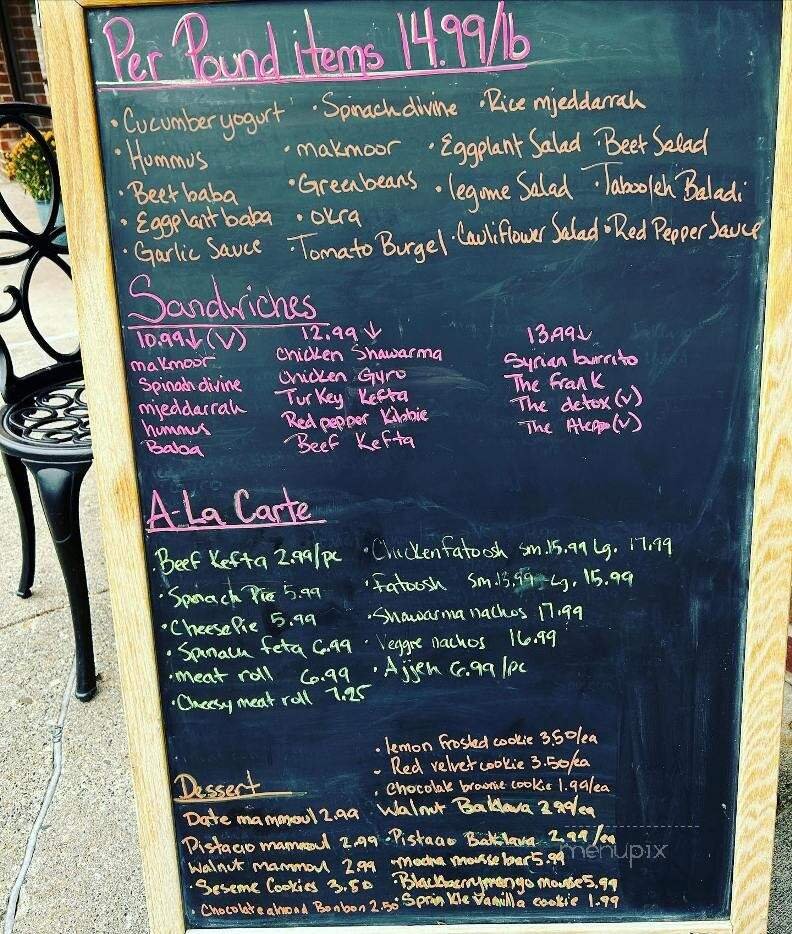 Per Pound items 14.99/lb
• Cucumber yogurt • Spinach divine • Rice mjeddarrah
• Hummus • makmoor • Eggplant Salad • Beet Salad
• Beet baba • Green beans • legume Salad • Tabooleh Baladi
• Eggplant baba • okra
• Garlic Sauce • Tomato Burgel • Cauliflower Salad • Red Pepper Sauce
Sandwiches
10.99↓(V) 12.99↓ 13.99↓
makmoor Chicken Shawarma Syrian burrito
Spinach divine Chicken Gyro The frank
mjeddarrah Turkey Kefta The detox (V)
hummus Red pepper Kibbie The Alepo (V)
Baba Beef Kefta
A-La Carte
Beef Kefta 2.99/pc • Chicken fatoosh sm.15.99 Lg. 17.99
• Spinach Pie 5.99 • fatoosh sm.13.99 Lg. 15.99
• Cheese Pie 5.99 • Shawarma nachos 17.99
• Spinach feta 6.99 • Veggie nachos 16.99
• meat roll 6.99 • Ajjeh 6.99/pc
• Cheesy meat roll 7.25
• lemon frosted cookie 3.50/ea
• Red velvet cookie 3.50/ea
Dessert • Chocolate brownie cookie 1.99/ea
Date mammoul 2.99 Walnut Baklava 2.99/ea
Pistacio mammoul 2.99 • Pistacio Baklava 2.99/ea
Walnut mammoul 2.99 • mocha mousse bar 5.99
• Seseme Cookies 3.50 • Blackberry mango mouse 5.99
• Chocolate almond Bonbon 2.50 • Sprinkle Vanilla cookie 1.99
menupix